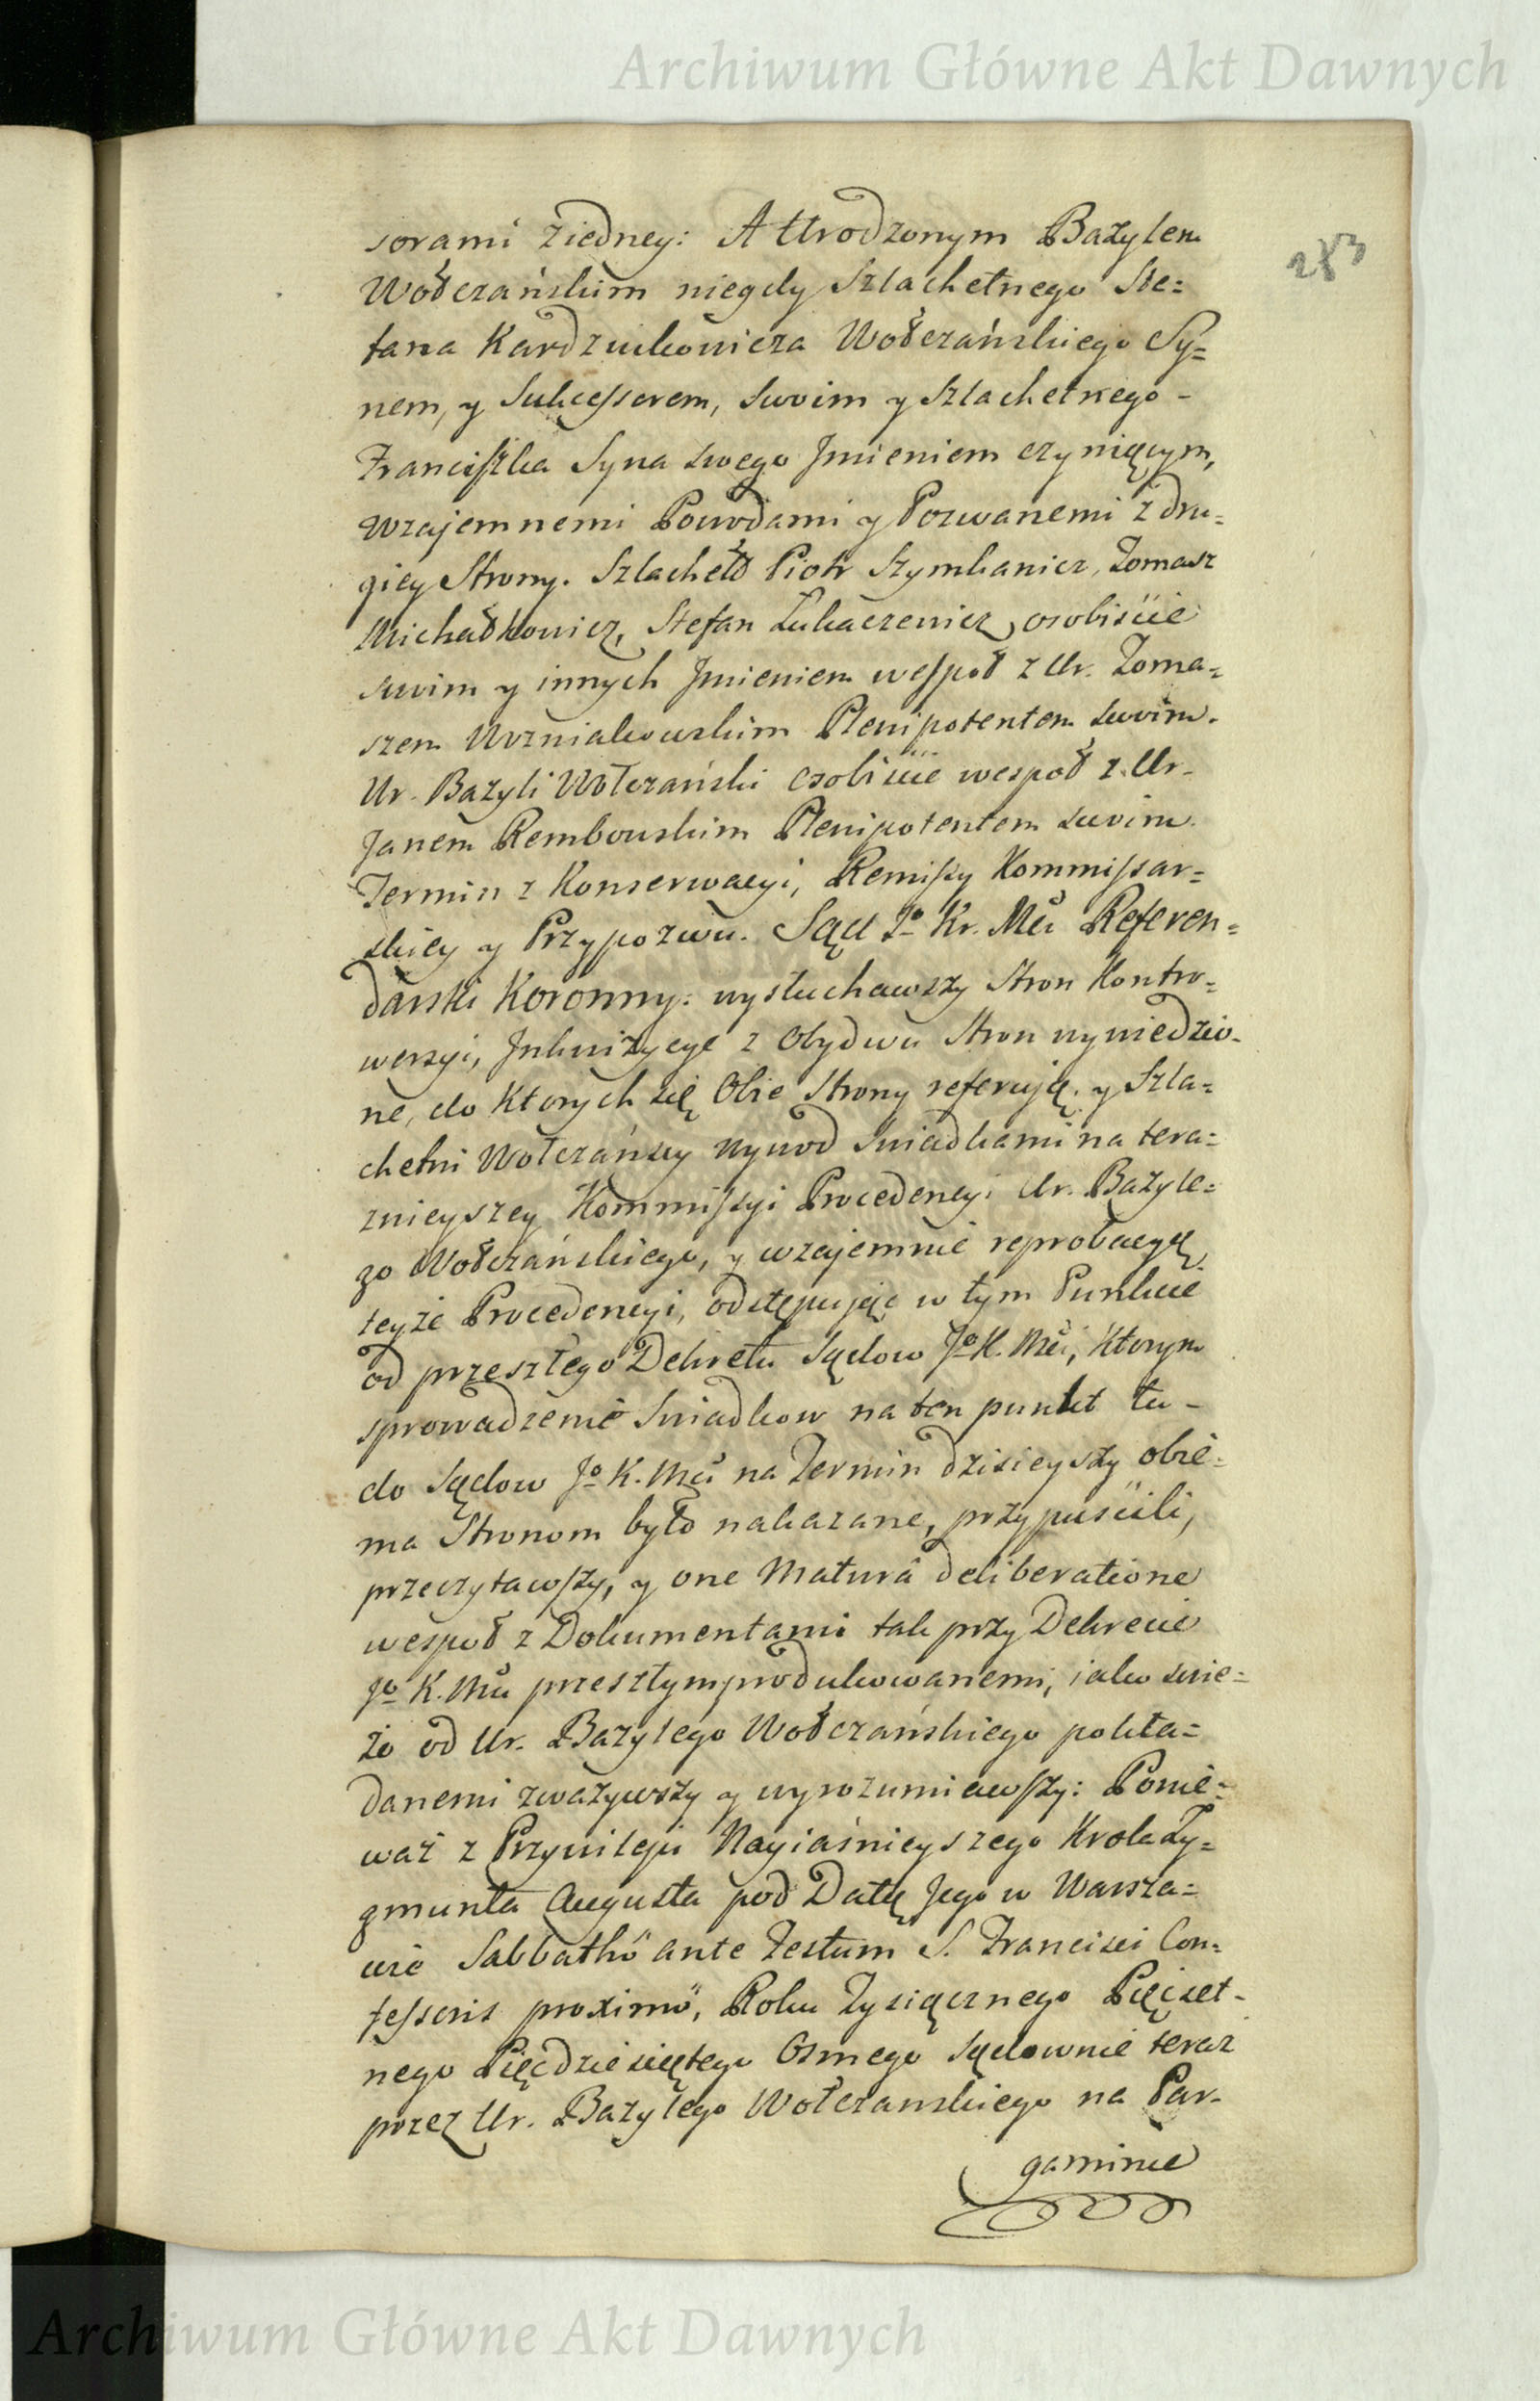 Archiwum Główne Akt Dawnych
283
sorami z iedney: A Urodzonym Bazylem
Wołczańskim niegdy Szlachetnego Ste=
fana Kardziukowicza Wołczańskiego Sy=
nem, y Sukcessorem, Swoim y Szlachetnego -
Franciszka Syna swego Jmieniem czyniącym,
wzajemnemi Powodami y Pozwanemi z dru=
giey Strony. Szlachetń Piotr Szymkanicz, Tomasz
Michałkowicz, Stefan Łukaczewicz, osobiście
swoim y innych Jmieniem wespoł z Ur. Toma=
szem Woźniakowskim Plenipotentem Swoim.
Ur. Bazyli Wołczański osobiście wespoł z Ur.
Janem Rembowskim Plenipotentem swoim.
Termin z Konserwacyi, Remissy Kommissar=
skiey y Przypozwu. Sąd Jo Kr. Mci Referen=
darski Koronny: wysłuchawszy Stron Kontro=
wersyi, Jnkwizycye z Obydwu Stron wywiedzio=
ne, do ktorych się Obie Strony referują. y Szla=
chetni Wołczańscy wywod Swiadkami na tera=
znieyszey Kommissyi Procedencyi Ur. Bazyle=
go Wołczańskiego, y wzajemnie reprobacyą
teyże Procedencyi, odstępując w tym Punkcie
od przeszłego Dekretu Sądow Jo K. Mci, ktorym
sprowadzenie Swiadkow na ten punkt tu -
do Sądow Jo K. Mci na Termin dzisieyszy obie=
ma Stronom było nakazane, przypuścili,
przeczytawszy, y one Maturâ deliberatione
wespoł z Dokumentami tak przy Dekrecie
Jo K. Mci przeszłym produkowanemi, iako swie=
żo od Ur. Bazylego Wołczańskiego pokła=
danemi zważywszy y wyrozumiawszy: Ponie=
waż z Przywileju Nayiaśnieyszego Krola Zy=
gmunta Augusta pod Datą Jego w Warsza=
wie Sabbathô ante Festum S. Francisci Con=
fessoris proximô, Roku Tysiącznego Pięćset-
nego Pięćdziesiętego Osmego sądownie teraz
przez Ur. Bazylego Wołczanskiego na Par-
gaminie
Archiwum Główne Akt Dawnych